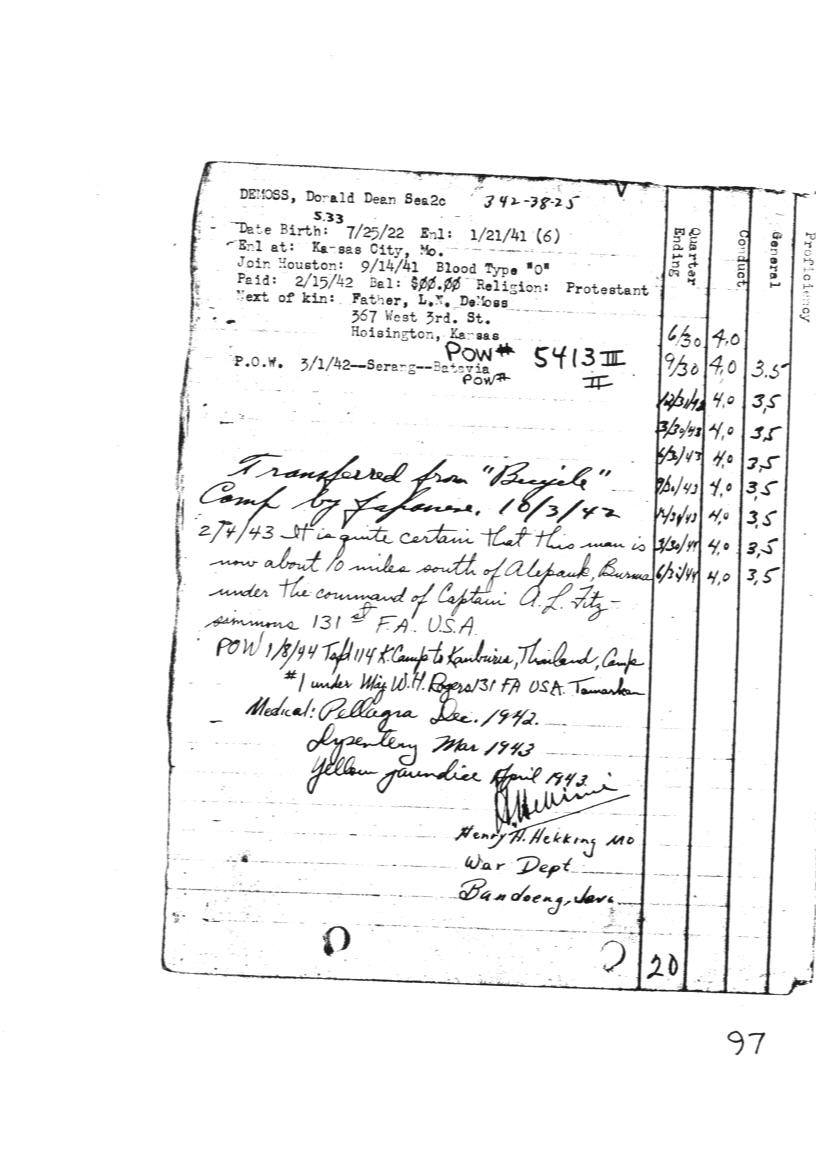 DEMOSS, Donald Dean Sea2c 342-38-25
S.33
Date Birth: 7/25/22 Enl: 1/21/41 (6)
Enl at: Kansas City, Mo.
Join Houston: 9/14/41 Blood Type "O"
Paid: 2/15/42 Bal: $00.00 Religion: Protestant
Next of kin: Father, L.N. DeMoss
367 West 3rd. St.
Hoisington, Kansas
POW# 5413 III
P.O.W. 3/1/42--Serang--Batavia
POW# II
Transferred from "Bicycle"
Camp by Japanese. 10/3/42
2/4/43 It is quite certain that this man is
now about 10 miles south of Alepauk, Burma
under the command of Captain A. L. Fitz-
simmons 131st F.A. U.S.A.
POW 1/8/44 Tsfd 114 K. Camp to Kanburia, Thailand, Camp
#1 under Maj W. H. Rogers 131 FA USA. Tamarkan
Medical: Pellagra Dec. 1942.
Dysentery Mar 1943
Yellow jaundice April 1943.
Henry H. Hekking MD
War Dept
Bandoeng, Java
Quarter Ending Conduct General Proficiency
6/30 4.0
9/30 4.0 3.5
12/31/42 4.0 3,5
3/30/43 4.0 3,5
6/30/43 4.0 3,5
9/30/43 4.0 3,5
12/31/43 4.0 3,5
3/30/44 4.0 3,5
6/30/44 4.0 3,5
20
97